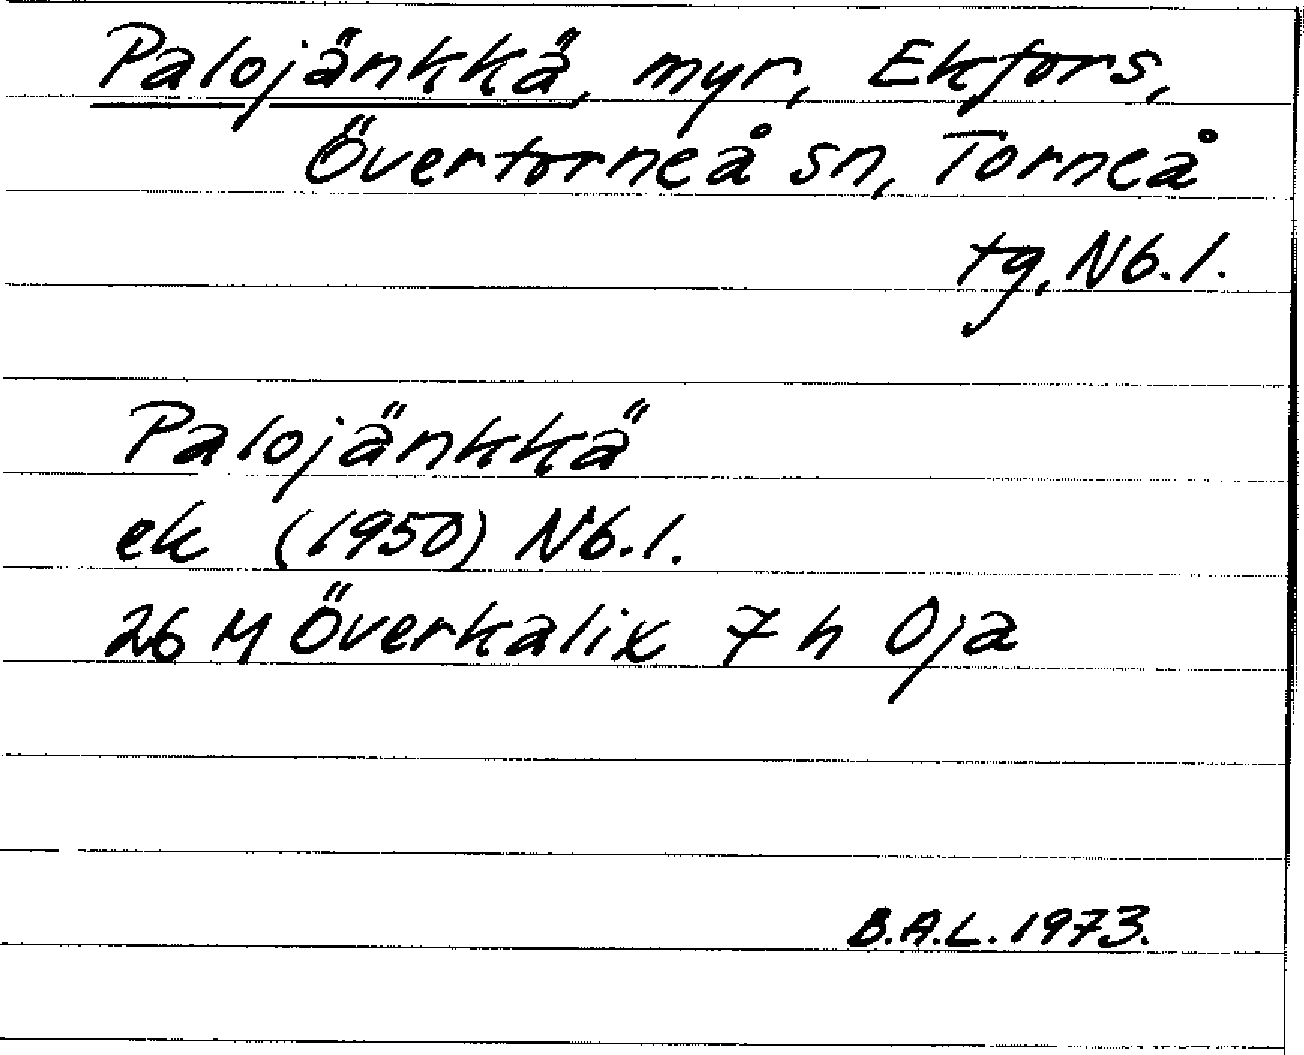 Palojänkkä, myr, Ekfors,
Övertorneå sn, Torneå
tg, Nb.l.
Palojänkkä
ek (1950) Nb.l.
26 M Överkalix 7 h Oja
B.A.L. 1973.